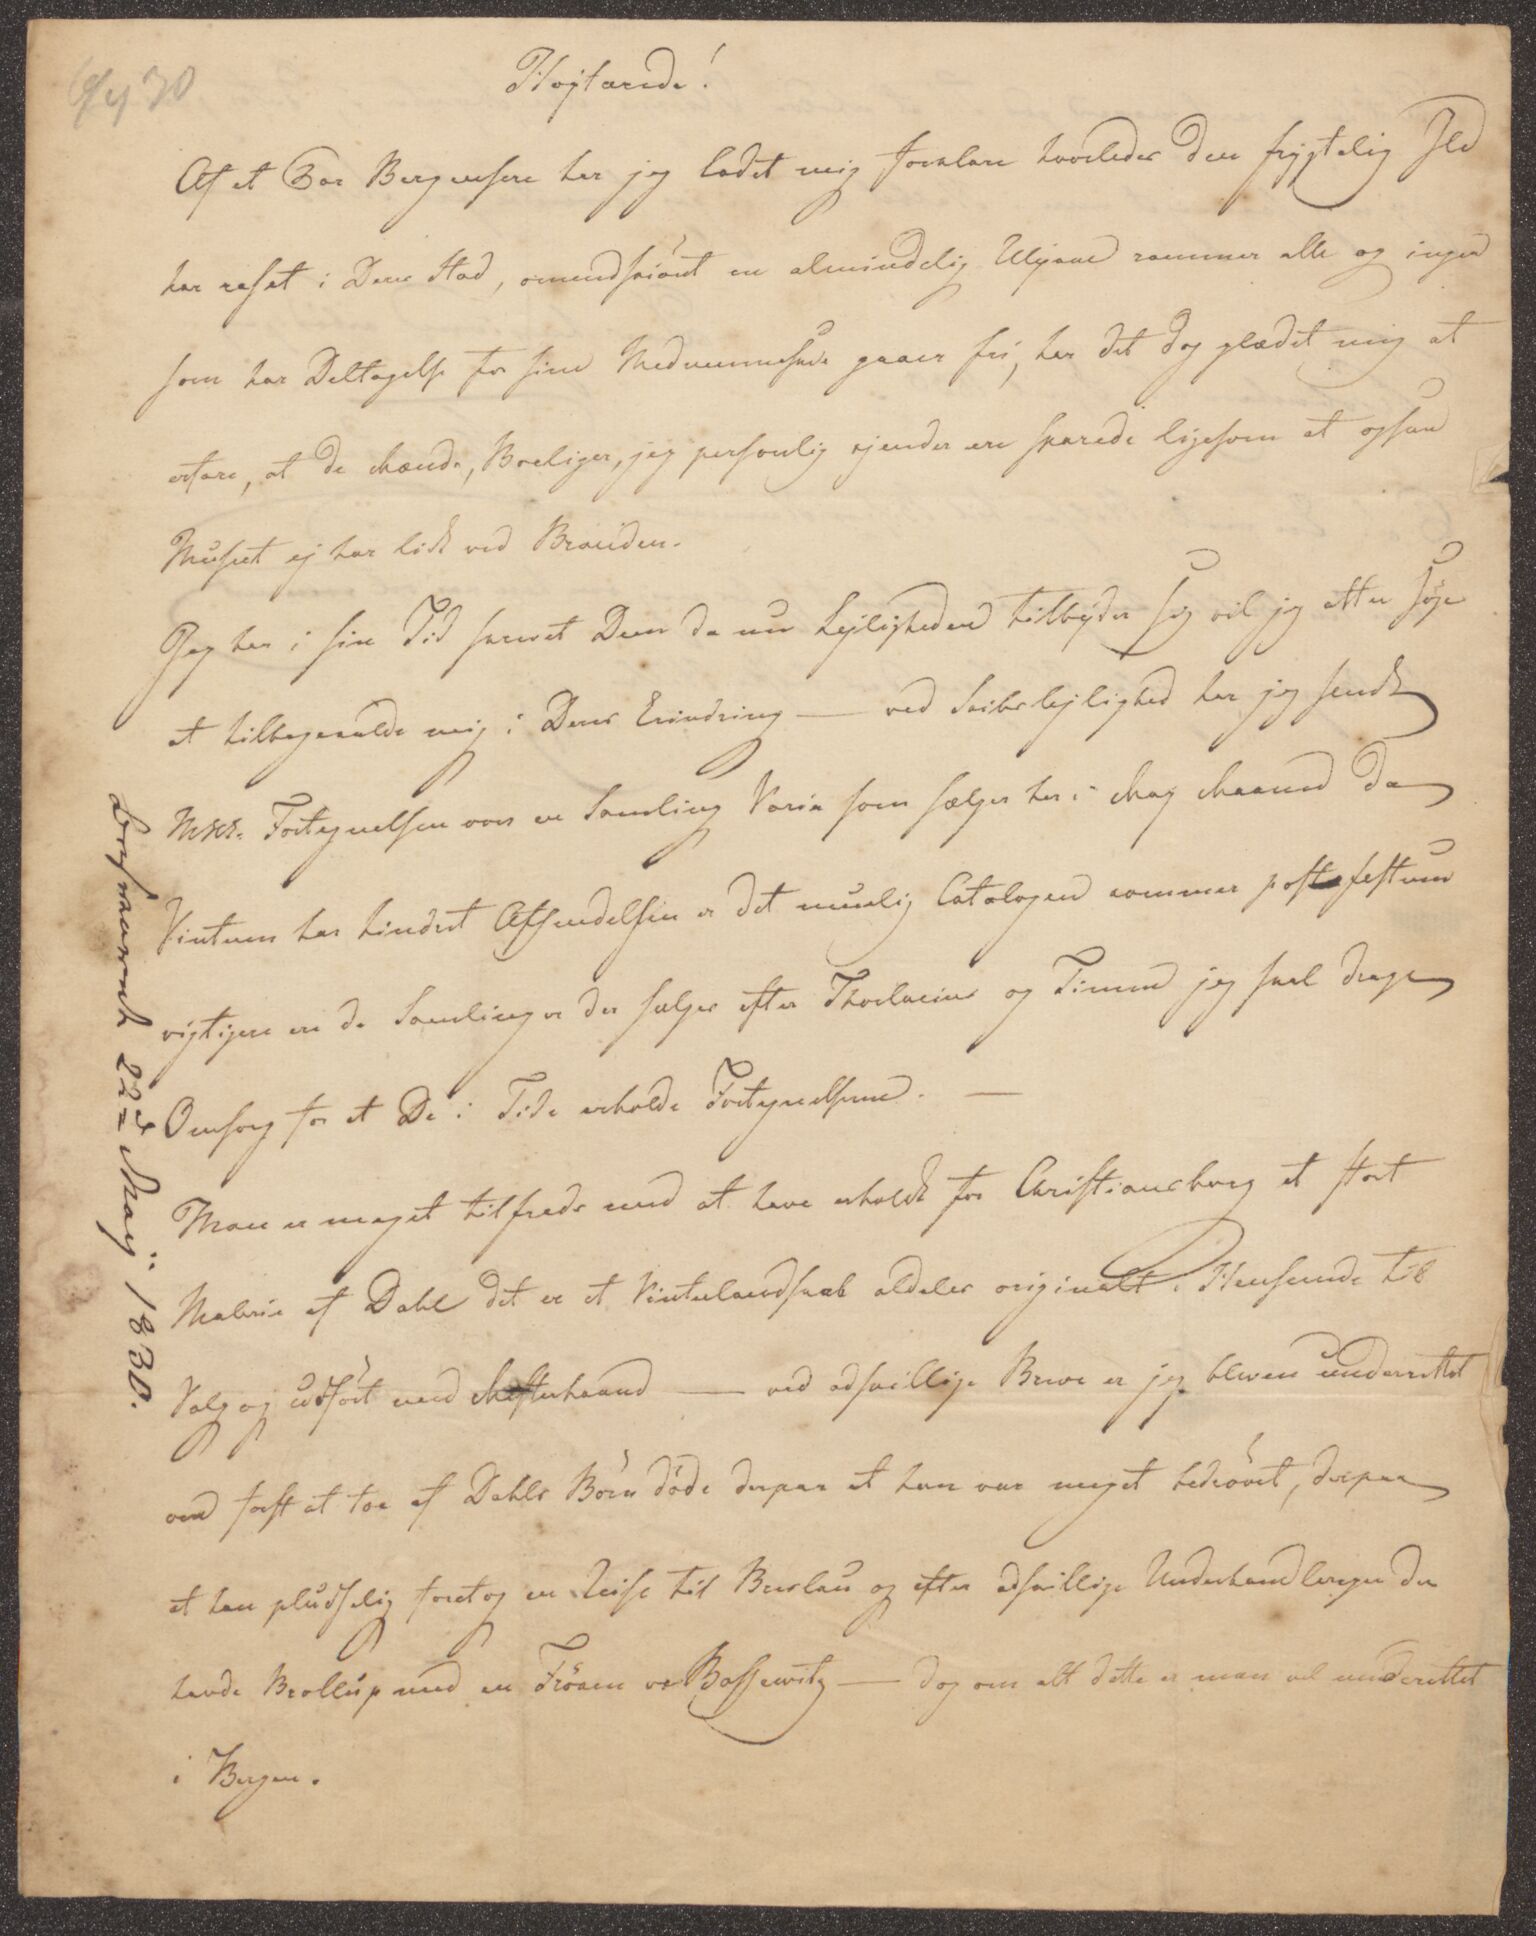 6/4 30
Höjtærede!
Af et Par Bergensere har jeg ladet mig forklare hvorledes den frygtelig Ild
har raset i Deres Stad, omendskiönt en almindelig Ulykke rammer alle og ingen
som har Deltagelse for sine Medmennesker gaaer fri, har det dog glædet mig at
erfare, at de Mænds, Boeliger, jeg personlig kjender ere sparede ligesom at ogsaa
Museet ej har lidt ved Branden.
Jeg har i sin Tid skrevet Dem da nu Lejligheden tilbyder sig vil jeg atter söge
at tilbagekalde mig i Deres Erindring — ved Skibslejlighed har jeg sendt
Fortegnelsen over en Samling Varia som sælges her i Maj Maaned da
Vinteren har hindret Afsendelsen er det muelig Catalogen kommer post festum
vigtigere ere de Samlinger der sælges efter Thorlacius og Timm jeg skal drage
Omsorg for at De i Tide erholde Fortegnelserne. —
Man er meget tilfreds med at have erholdt for Christiansborg et stort
Malerie af Dahl det er et Vinterlandskab aldeles originalt i Henseende til
Valg og udfört med Mesterhaand — ved adskillige Breve er jeg bleven underrettet
om först at toe af Dahls Börn döde derpaa at han var meget bedrövet, derpaa
at han pludselig foretog en Reise til Breslau og efter adskillige Underhandlinger der
havde Brollup med en Fröken v. Bassewitz — dog om alt dette er man vel underrettet
i Bergen.
Besvaaret 22de Maj 1830.